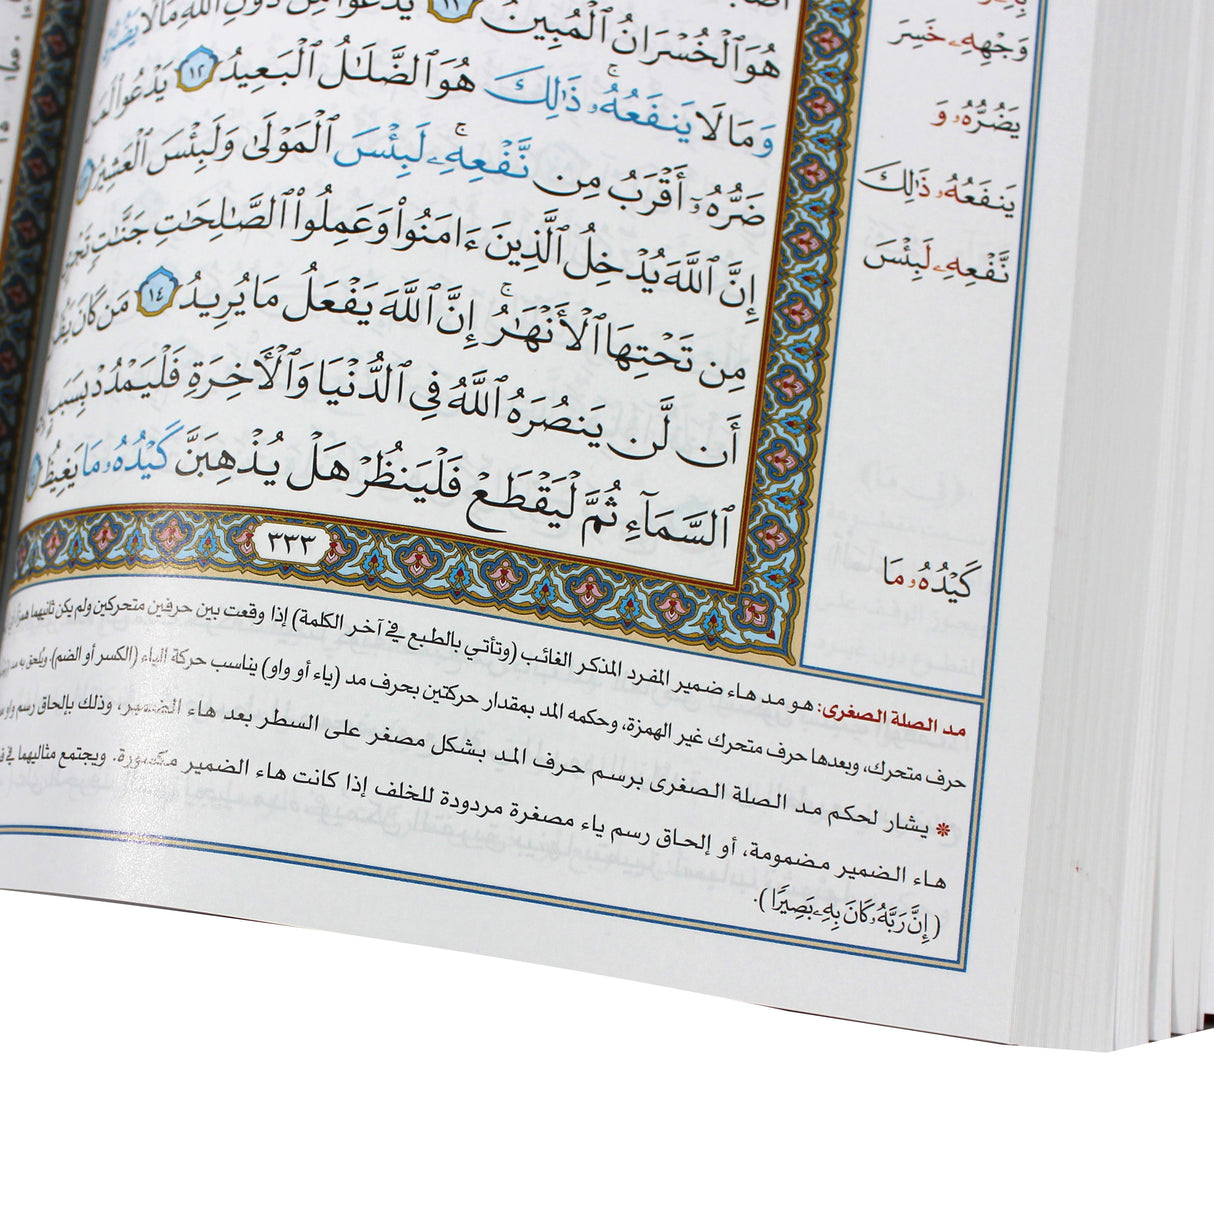 هُوَ ٱلْخُسْرَانُ ٱلْمُبِينُ ١١ يَدْعُوا۟ مِن دُونِ ٱللَّهِ مَا لَا يَضُرُّهُۥ
وَمَا لَا يَنفَعُهُۥ ۚ ذَٰلِكَ هُوَ ٱلضَّلَٰلُ ٱلْبَعِيدُ ١٢ يَدْعُوا۟ لَمَن
ضَرُّهُۥٓ أَقْرَبُ مِن نَّفْعِهِۦ ۚ لَبِئْسَ ٱلْمَوْلَىٰ وَلَبِئْسَ ٱلْعَشِيرُ
إِنَّ ٱللَّهَ يُدْخِلُ ٱلَّذِينَ ءَامَنُوا۟ وَعَمِلُوا۟ ٱلصَّٰلِحَٰتِ جَنَّٰتٍ تَجْرِى
مِن تَحْتِهَا ٱلْأَنْهَٰرُ ۚ إِنَّ ٱللَّهَ يَفْعَلُ مَا يُرِيدُ ١٤ مَن كَانَ يَظُنُّ
أَن لَّن يَنصُرَهُ ٱللَّهُ فِى ٱلدُّنْيَا وَٱلْأَخِرَةِ فَلْيَمْدُدْ بِسَبَبٍ
ٱلسَّمَآءِ ثُمَّ لْيَقْطَعْ فَلْيَنظُرْ هَلْ يُذْهِبَنَّ كَيْدُهُۥ مَا يَغِيظُ ١٥
٣٣٣
وَجْهِهِۦ خَسِرَ
يَضُرُّهُۥ وَ
يَنفَعُهُۥ ذَٰلِكَ
نَّفْعِهِۦ لَبِئْسَ
كَيْدُهُۥ مَا
مد الصلة الصغرى: هو مد هاء ضمير المفرد المذكر الغائب (وتأتي بالطبع في آخر الكلمة) إذا وقعت بين حرفين متحركين ولم يكن ثانيهما
حرف متحرك، وبعدها حرف متحرك غير الهمزة، وحكمه المد بمقدار حركتين بحرف مد (ياء أو واو) يناسب حركة الهاء (الكسر أو الضم)، ويُلحق به
* يشار لحكم مد الصلة الصغرى برسم حرف المد بشكل مصغر على السطر بعد هاء الضمير، وذلك بإلحاق رسم واو
هاء الضمير مضمومة، أو إلحاق رسم ياء مصغرة مردودة للخلف إذا كانت هاء الضمير مكسورة. ويجتمع مثاليهما في
(إِنَّ رَبَّهُۥ كَانَ بِهِۦ بَصِيرًا).